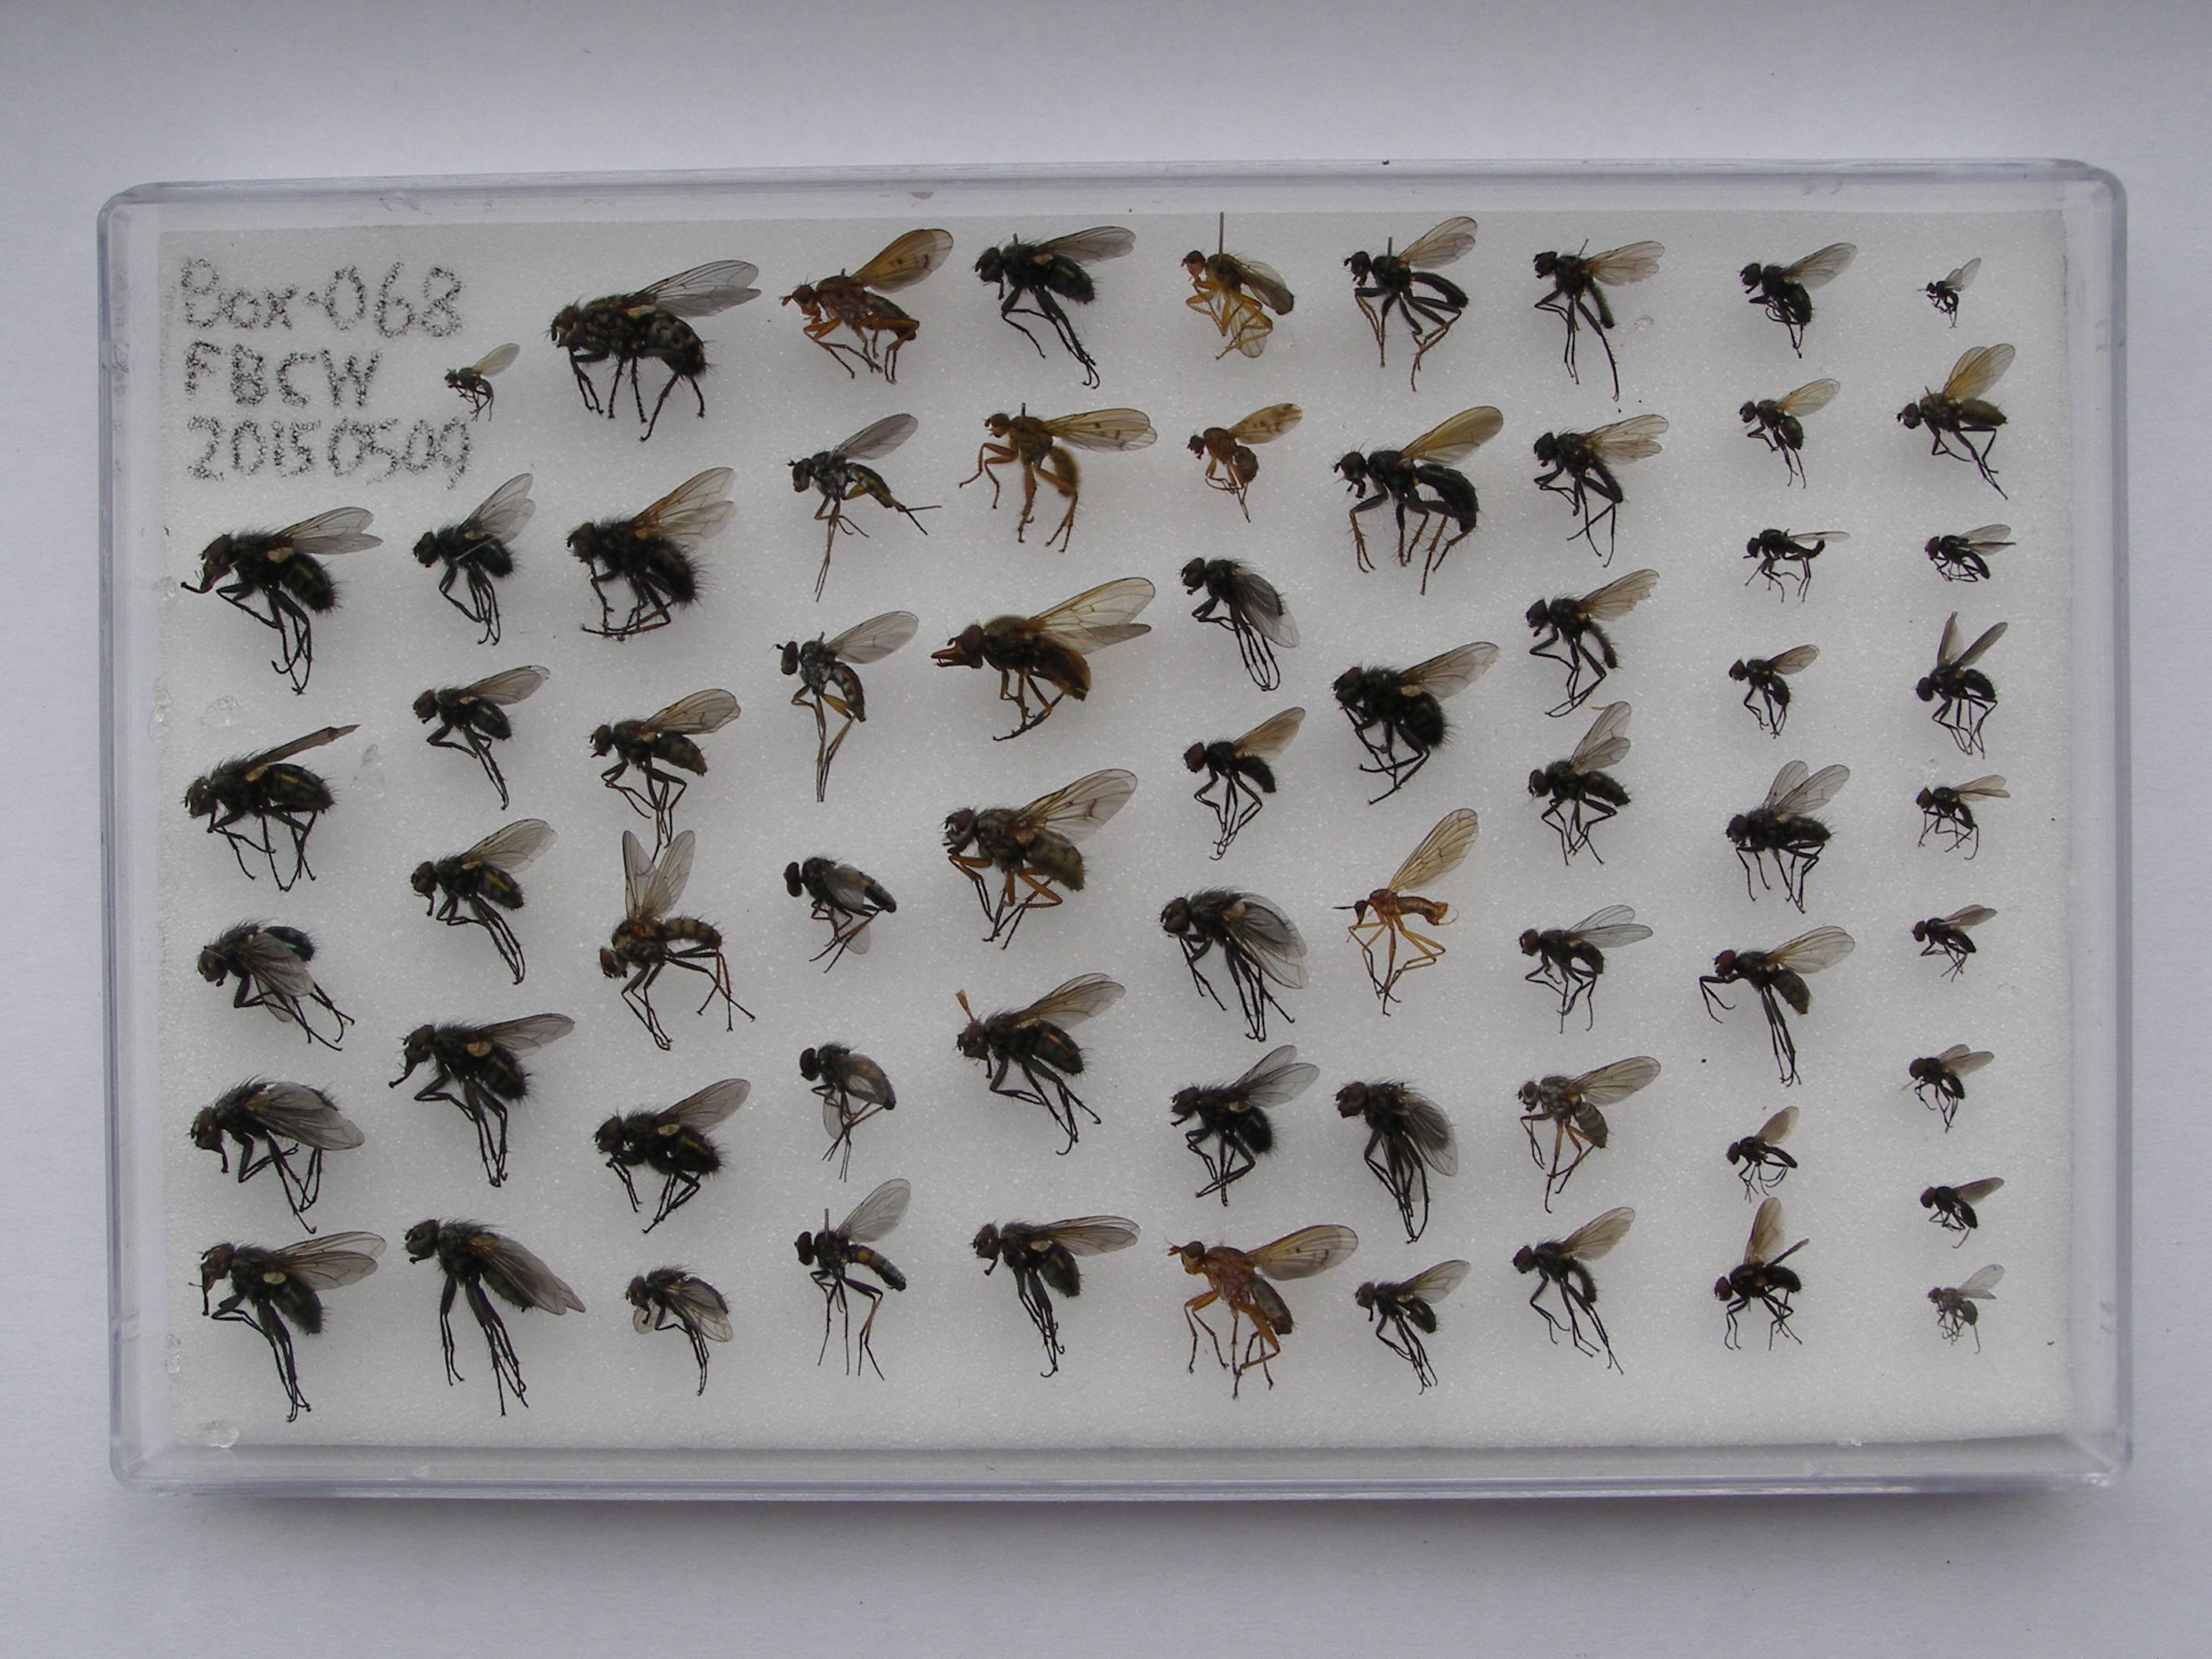 Box-068
FBCW
20150509